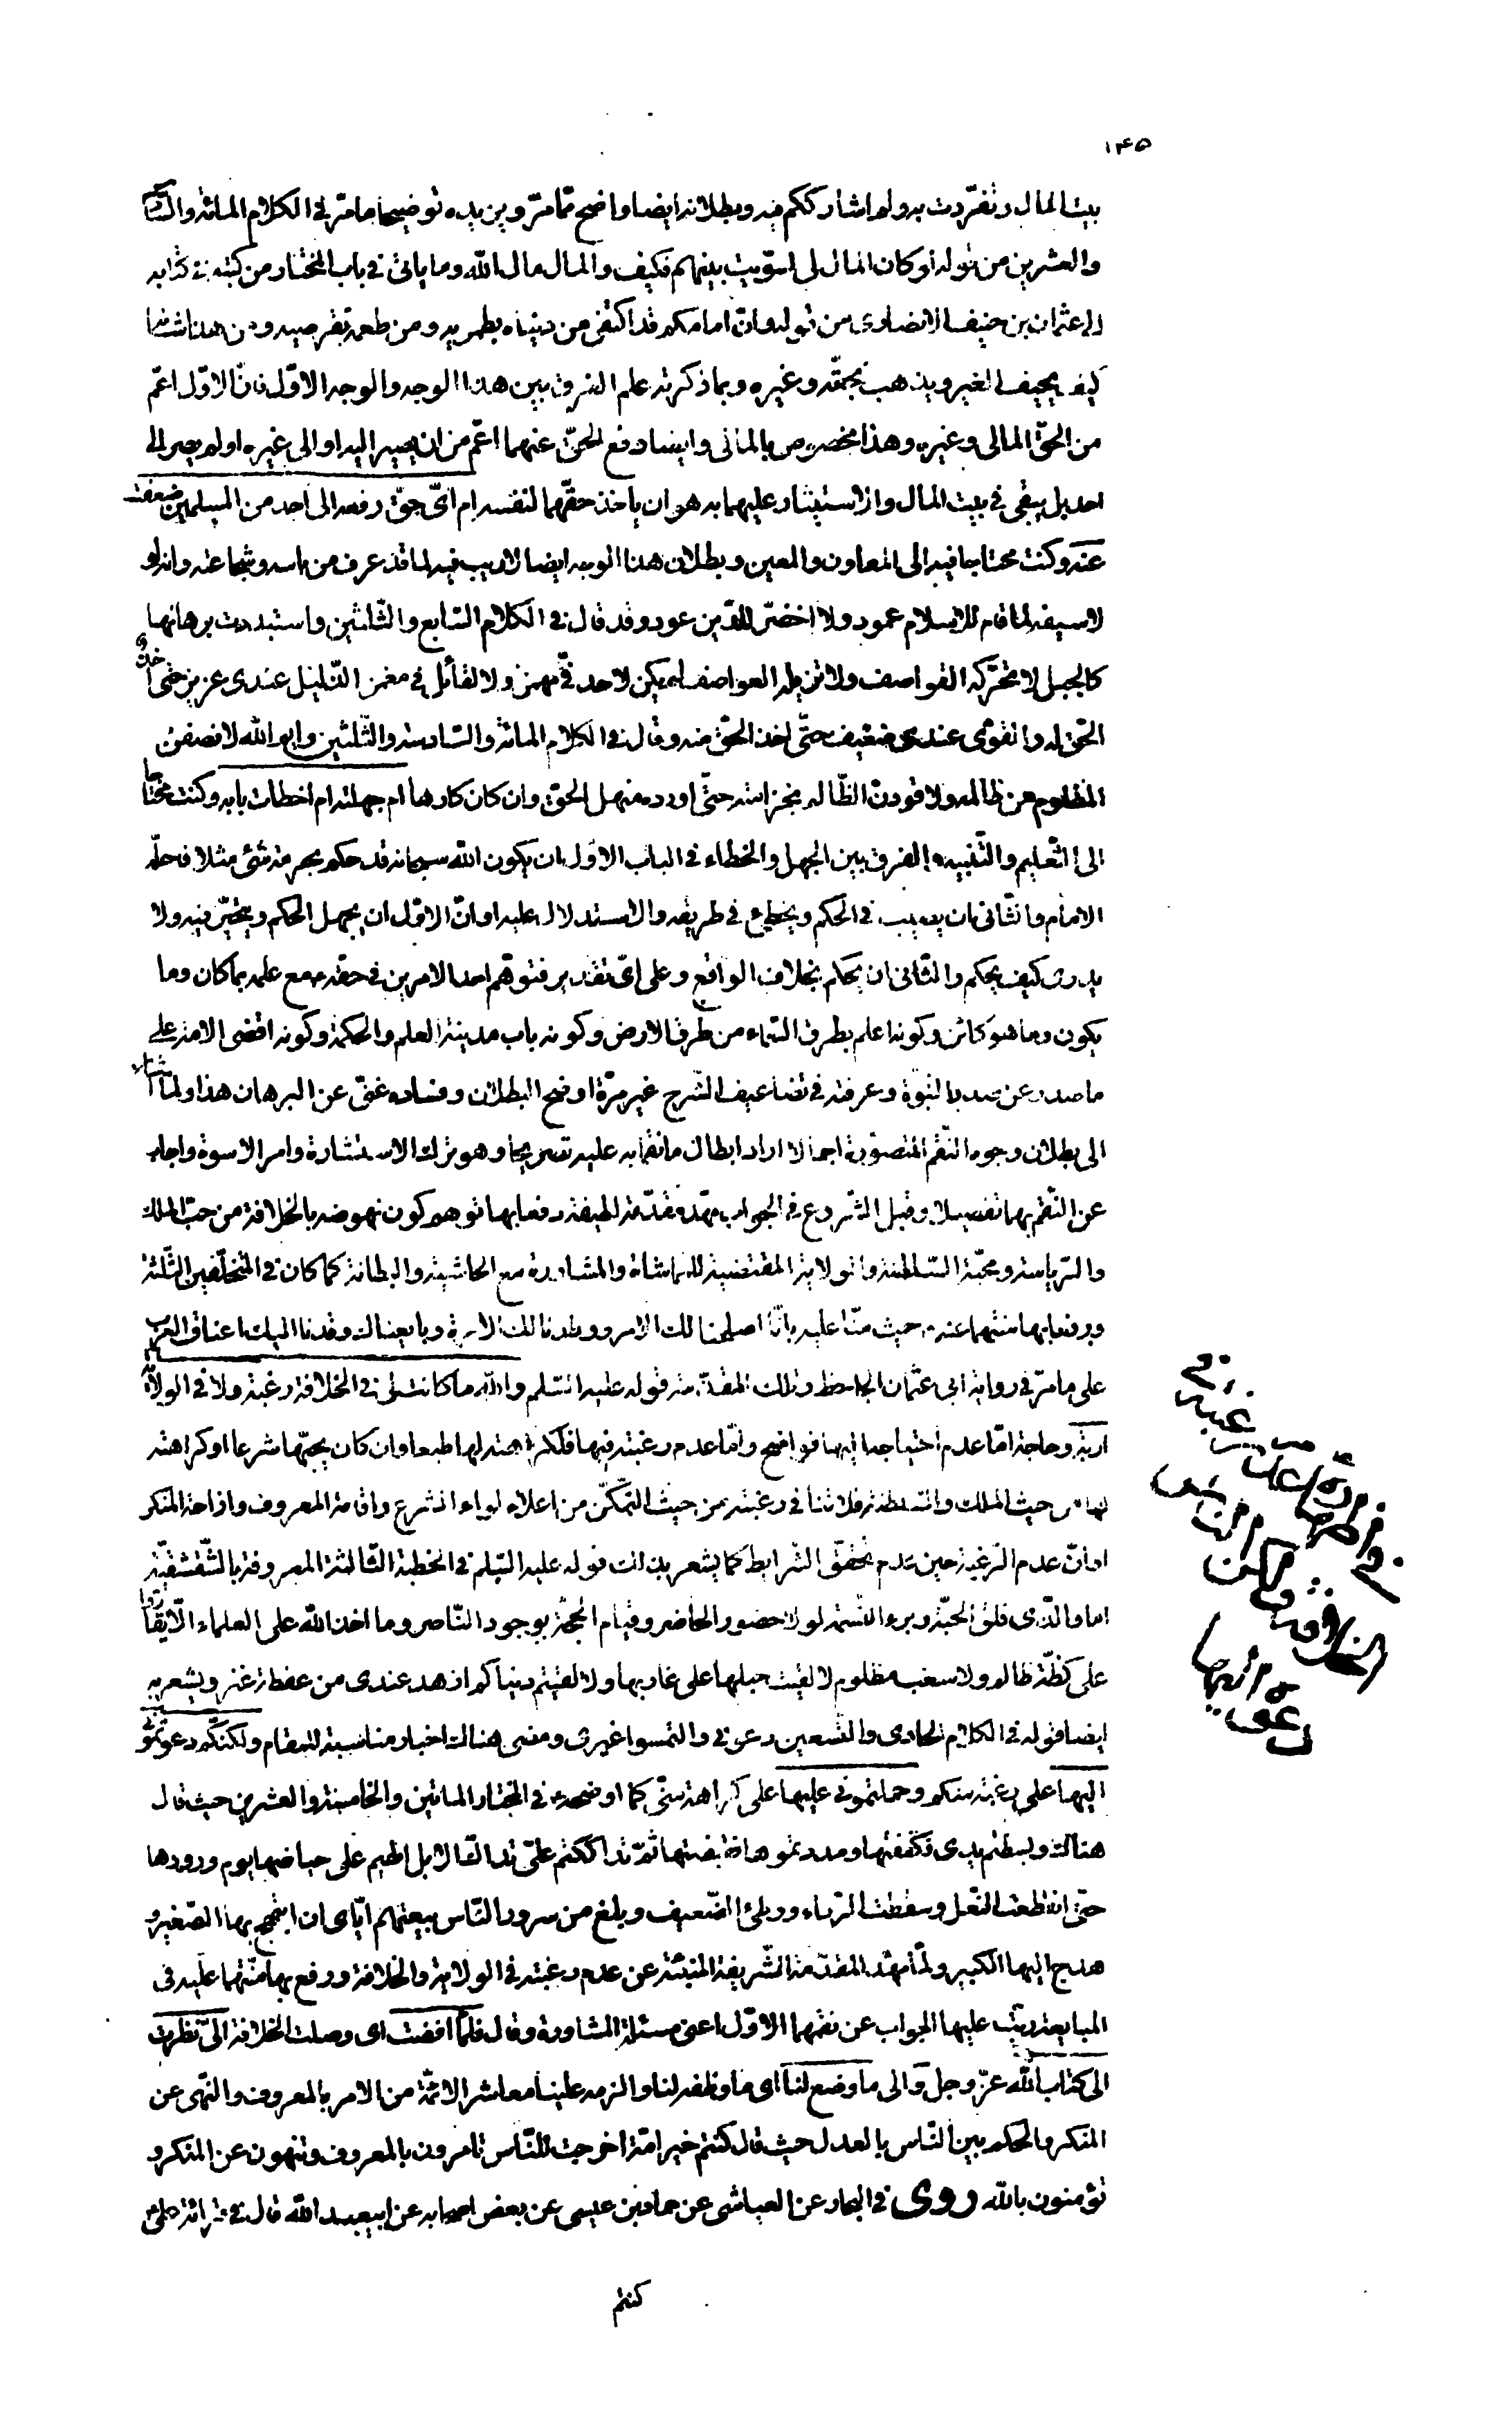 ١٤٥
بيت المال وتفرّدت به ولم اشارككم فيه وبطلانه ايضا واضح ممّا مرّ ويزيده توضيحا ما مرّ في الكلام المائة والسّادس
والعشرين من قوله لو كان المال لى لسوّيت بينهم فكيف والمال مال الله وما ياتى في باب المختار من كتبه في كتابه
الى عثمان بن حنيف الانصارى من قوله وانّ امامكم قد اكتفى من دنياه بطمريه ومن طعمه بقرصيه ومن هذا شانه
كيف يحيف الغير ويذهب بحقّه وغيره وبما ذكرته علم الفرق بين هذا الوجه والوجه الاوّل فانّ الاوّل اعمّ
من الحقّ المالى وغيره وهذا مخصوص بالمالى وايضا دفع الحقّ عنهما اعمّ من ان يصير اليه او الى غيره او لم يصر الى
احد بل يبقى في بيت المال والاستيثار عليهما به هو ان ياخذ حقّهما لنفسه ام اىّ حقّ رفعه الى احد من المسلمين ضعفت
عنه وكنت محتاجا فيه الى المعاون والمعين وبطلان هذا الوجه ايضا لاريب فيه لما قد عرف من باسه وشجاعته وانه لو
لا سيفه لما قام للاسلام عمود ولا اخضرّ للدّين عود وقد قال في الكلام السّابع والثّلثين واستبددت برهانها
كالجبل لا تحرّكه القواصف ولا تزيله العواصف لم يكن لاحد فىّ مهمز ولا لقائل فىّ مغمز الذّليل عندى عزيز حتّى آخذ
الحقّ له والقوىّ عندى ضعيف حتّى اخذ الحقّ منه وقال في الكلام المائة والسّادسة والثّلثين وايم الله لانصفنّ
المظلوم من ظالمه ولاقودنّ الظّالم بخزامته حتّى اورده منهل الحقّ وان كان كارها ام جهلته ام اخطات بابه وكنت محتاجا
الى التّعليم والتّنبيه والفرق بين الجهل والخطاء في الباب الاوّل ان يكون الله سبحانه قد حكم بحرمة شئ مثلا فاحلّه
الامام والثّانى ان يصيب في الحكم ويخطئ في طريقه والاستدلال عليه او انّ الاوّل ان يجهل الحكم ويتحيّر فيه ولا
يدرى كيف يحكم والثّانى ان يحكم بخلاف الواقع وعلى اىّ تقدير فتوهّم احد الامرين في حقّه مع علمه بما كان وما
يكون وما هو كائن وكونه اعلم بطرق السّماء من طرق الارض وكونه باب مدينة العلم والحكمة وكونه اقضى الامة على
ما صدر عن صدر النّبوة وعرفته في تضاعيف الشّرح غير مرّة اوضح البطلان وفساده غنىّ عن البرهان هذا ولمّا اشار
الى بطلان وجوه النّقم المتصوّرة اجمالا اراد ابطال ما نقما به عليه تصريحا وهو ترك الاستشارة وامر الاسوة واجاب
عن النّقم بهما تفصيلا وقبل الشّروع في الجواب مهّد مقدّمة لطيفة دفعا بها توهم كون نهوضه بالخلافة من حبّ الملك
والرّياسة ومحبّة السّلطنة والولاية المقتضية للمماشاة والمشاورة مع الحاشية والبطانة كما كان في المتخلّفين الثّلثة
ودفعا بها منّتهما عنه حيث منّا عليه بانّا اصلحنا لك الامر ووطّدنا لك الامرة وبايعناك وقدنا اليك اعناق العرب
على ما مرّ في رواية ابى عثمان الجاحظ وتلك المقدّمة قوله عليه السّلم والله ما كانت لى في الخلافة رغبة ولا في الولاية
اربة وحاجة امّا عدم احتياجه اليها فواضح وامّا عدم رغبته فيها فلكراهته لها طبعا وان كان يحبّها شرعا او كراهته
لها من حيث الملك والسّلطنة فلا تنافى رغبته من حيث التمكّن من اعلاء لواء الشرع واقامة المعروف وازاحة المنكر
او انّ عدم الرّغبة حين عدم تحقّق الشّرايط كما يشعر بذلك قوله عليه السّلم في الخطبة الثّالثة المعروفة بالشّقشقيّة
اما والّذى فلق الحبّة وبرء النّسمة لولا حضور الحاضر وقيام الحجّة بوجود النّاصر وما اخذ الله على العلماء الّا يقارّوا
على كظّة ظالم ولا سغب مظلوم لالقيت حبلها على غاربها ولالفيتم دنياكم ازهد عندى من عفطة عنز ويشعر به
ايضا قوله في الكلام الحادى والتّسعين دعونى والتمسوا غيرى ومضى هنالك اخبار مناسبة للمقام ولكنّكم دعوتمونى
اليها على رغبة منكم وحملتمونى عليها على كراهة منّى كما اوضحه في المختار الماتين والخامسة والعشرين حيث قال
هنالك وبسطتم يدى فكففتها ومددتموها فقبضتها ثمّ تداككتم علىّ تداكّ الابل الهيم على حياضها يوم ورودها
حتّى انقطعت النّعل وسقطت الرّداء ووطئ الضّعيف وبلغ من سرور النّاس ببيعتهم ايّاى ان ابتهج بها الصّغير و
هدج اليها الكبير ولمّا مهّد المقدّمة الشّريفة المنبئة عن عدم رغبته في الولاية والخلافة ودفع بها منّتهما عليه في
المبايعة رتّب عليها الجواب عن نقمهما الاوّل اعنى مسئلة المشاورة وقال فلمّا افضت اى وصلت الخلافة الىّ نظرت
الى كتاب الله عزّ وجل والى ما وضع لنا اى ما وظفه لنا والزمه علينا معاشر الائمّة من الامر بالمعروف والنّهى عن
المنكر والحكم بين النّاس بالعدل حيث قال كنتم خير امّة اخرجت للنّاس تامرون بالمعروف وتنهون عن المنكر و
تؤمنون بالله روى في البحار عن العياشى عن حماد بن عيسى عن بعض اصحابه عن ابيعبد الله قال في قرائة علىّ
كنتم